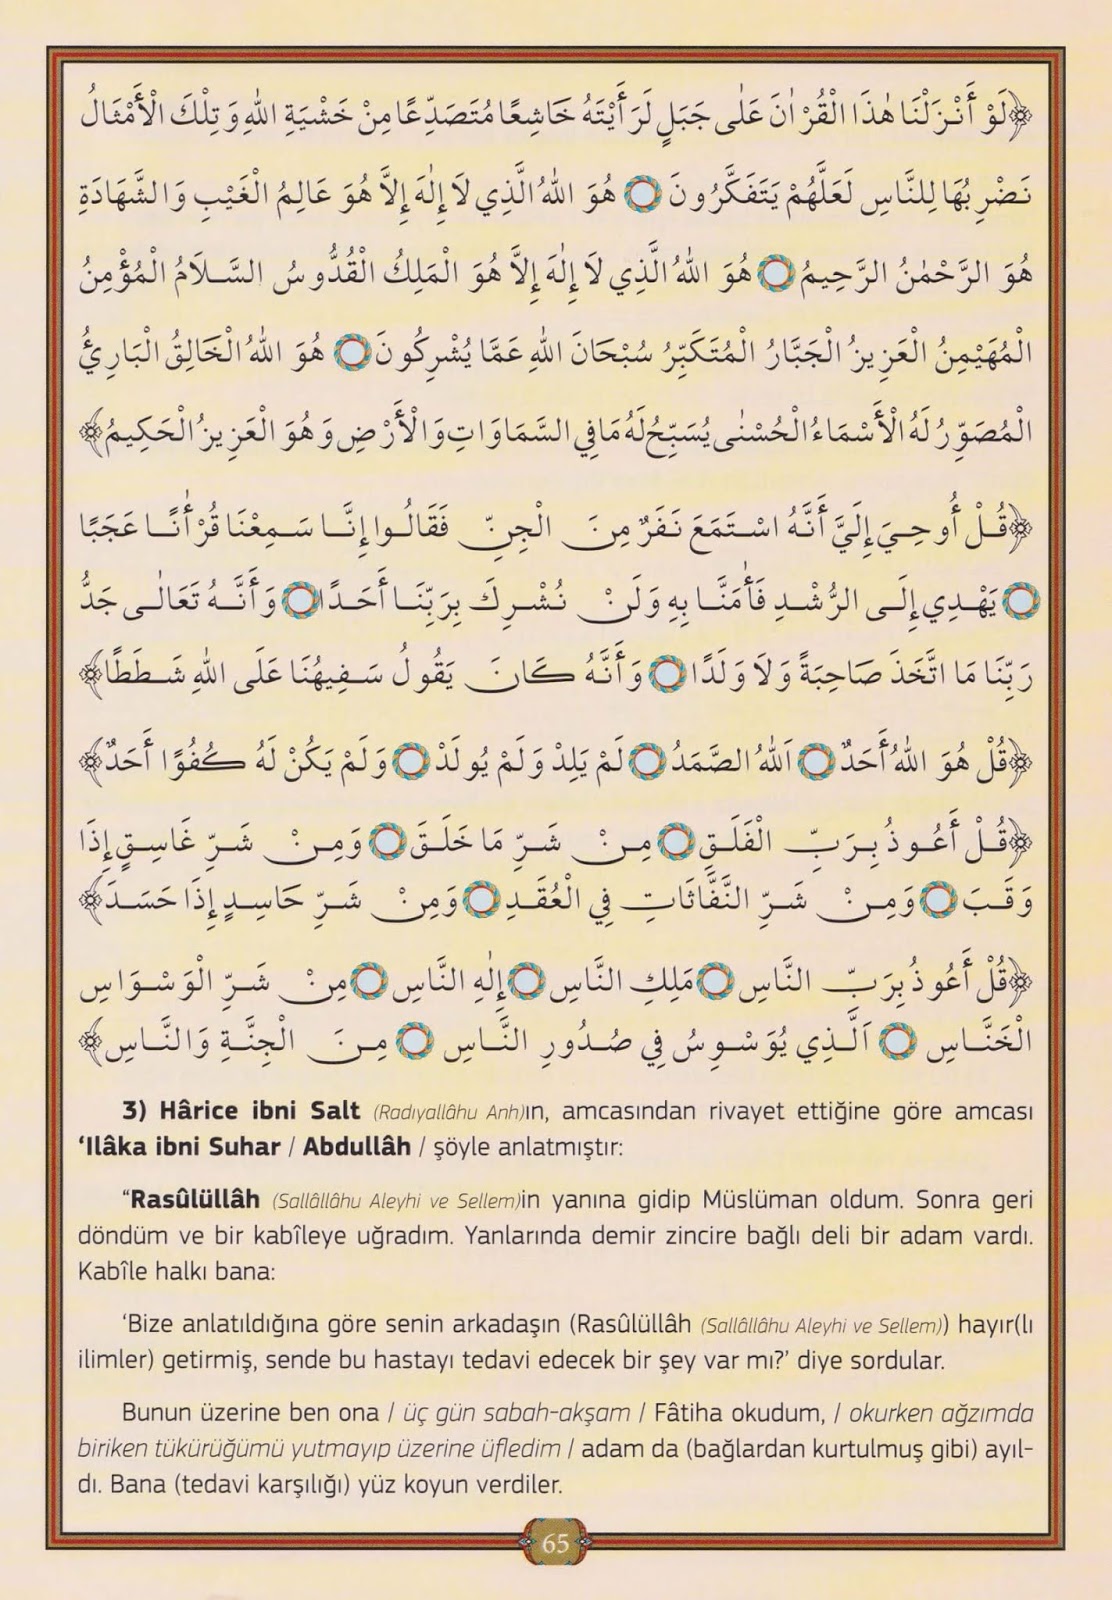 ﴿لَوْ أَنْزَلْنَا هٰذَا الْقُرْاٰنَ عَلٰى جَبَلٍ لَرَأَيْتَهُ خَاشِعًا مُتَصَدِّعًا مِنْ خَشْيَةِ اللّٰهِ وَتِلْكَ الْأَمْثَالُ
نَضْرِبُهَا لِلنَّاسِ لَعَلَّهُمْ يَتَفَكَّرُونَ ۝ هُوَ اللّٰهُ الَّذِي لَا إِلٰهَ إِلَّا هُوَ عَالِمُ الْغَيْبِ وَالشَّهَادَةِ
هُوَ الرَّحْمٰنُ الرَّحِيمُ ۝ هُوَ اللّٰهُ الَّذِي لَا إِلٰهَ إِلَّا هُوَ الْمَلِكُ الْقُدُّوسُ السَّلَامُ الْمُؤْمِنُ
الْمُهَيْمِنُ الْعَزِيزُ الْجَبَّارُ الْمُتَكَبِّرُ سُبْحَانَ اللّٰهِ عَمَّا يُشْرِكُونَ ۝ هُوَ اللّٰهُ الْخَالِقُ الْبَارِئُ
الْمُصَوِّرُ لَهُ الْأَسْمَاءُ الْحُسْنٰى يُسَبِّحُ لَهُ مَا فِي السَّمَاوَاتِ وَالْأَرْضِ وَهُوَ الْعَزِيزُ الْحَكِيمُ﴾
﴿قُلْ أُوحِيَ إِلَيَّ أَنَّهُ اسْتَمَعَ نَفَرٌ مِنَ الْجِنِّ فَقَالُوا إِنَّا سَمِعْنَا قُرْاٰنًا عَجَبًا
۝ يَهْدِي إِلَى الرُّشْدِ فَاٰمَنَّا بِهِ وَلَنْ نُشْرِكَ بِرَبِّنَا أَحَدًا ۝ وَأَنَّهُ تَعَالٰى جَدُّ
رَبِّنَا مَا اتَّخَذَ صَاحِبَةً وَلَا وَلَدًا ۝ وَأَنَّهُ كَانَ يَقُولُ سَفِيهُنَا عَلَى اللّٰهِ شَطَطًا﴾
﴿قُلْ هُوَ اللّٰهُ أَحَدٌ ۝ اَللّٰهُ الصَّمَدُ ۝ لَمْ يَلِدْ وَلَمْ يُولَدْ ۝ وَلَمْ يَكُنْ لَهُ كُفُوًا أَحَدٌ﴾
﴿قُلْ أَعُوذُ بِرَبِّ الْفَلَقِ ۝ مِنْ شَرِّ مَا خَلَقَ ۝ وَمِنْ شَرِّ غَاسِقٍ إِذَا
وَقَبَ ۝ وَمِنْ شَرِّ النَّفَّاثَاتِ فِي الْعُقَدِ ۝ وَمِنْ شَرِّ حَاسِدٍ إِذَا حَسَدَ﴾
﴿قُلْ أَعُوذُ بِرَبِّ النَّاسِ ۝ مَلِكِ النَّاسِ ۝ إِلٰهِ النَّاسِ ۝ مِنْ شَرِّ الْوَسْوَاسِ
الْخَنَّاسِ ۝ اَلَّذِي يُوَسْوِسُ فِي صُدُورِ النَّاسِ ۝ مِنَ الْجِنَّةِ وَالنَّاسِ﴾
3) Hârice ibni Salt (Radıyallâhu Anh)ın, amcasından rivayet ettiğine göre amcası
'Ilâka ibni Suhar / Abdullâh / şöyle anlatmıştır:
"Rasûlüllâh (Sallâllâhu Aleyhi ve Sellem)in yanına gidip Müslüman oldum. Sonra geri
döndüm ve bir kabîleye uğradım. Yanlarında demir zincire bağlı deli bir adam vardı.
Kabîle halkı bana:
'Bize anlatıldığına göre senin arkadaşın (Rasûlüllâh (Sallâllâhu Aleyhi ve Sellem)) hayır(lı
ilimler) getirmiş, sende bu hastayı tedavi edecek bir şey var mı?' diye sordular.
Bunun üzerine ben ona / üç gün sabah-akşam / Fâtiha okudum, / okurken ağzımda
biriken tükürüğümü yutmayıp üzerine üfledim / adam da (bağlardan kurtulmuş gibi) ayıl-
dı. Bana (tedavi karşılığı) yüz koyun verdiler.
65